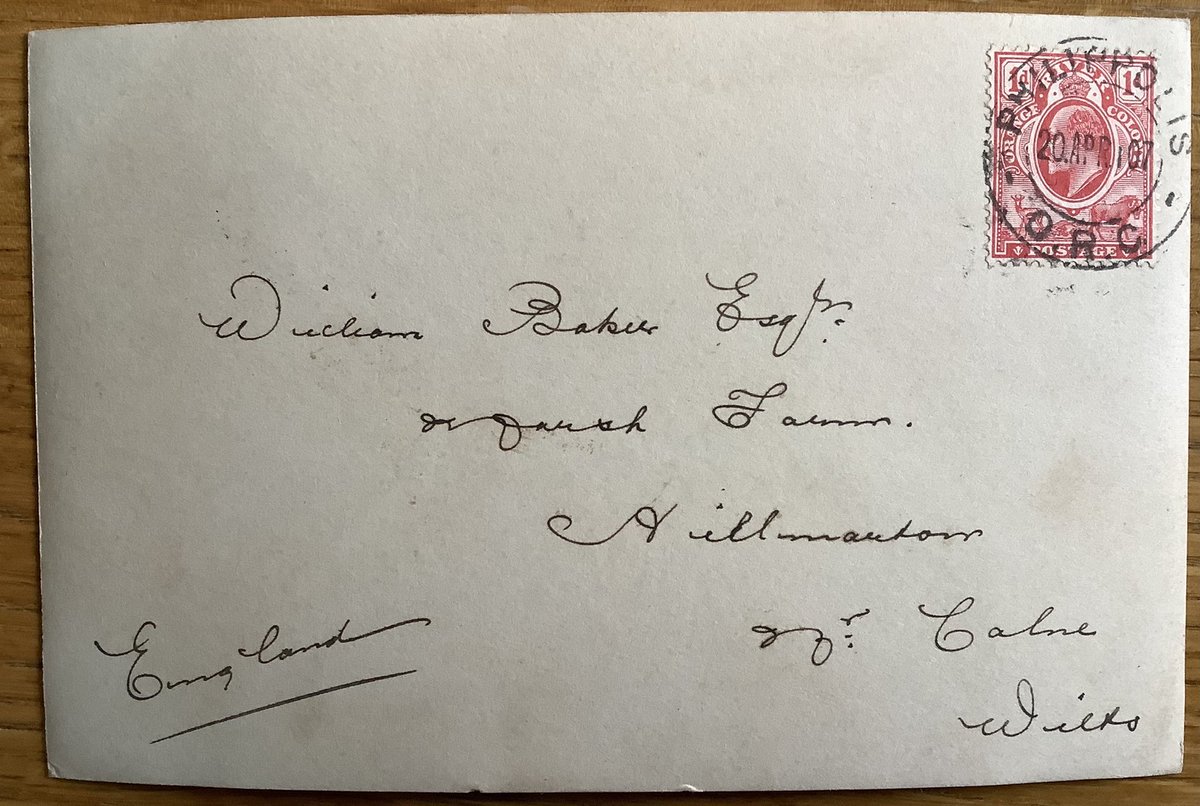 1d 1d
ORANGE RIVER COLONY
POSTAGE
PHILIPPOLIS
20.APR.07
O.R.C
William Baker Esqr.
Marsh Farm.
Hillmarton
Nr. Calne
Wilts
England